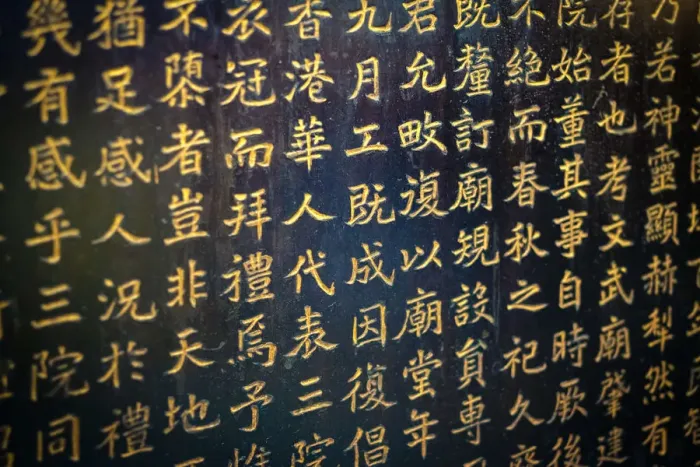 乃若神靈顯赫犁然有
存者也考文武廟肇建
院始董其事自時厥後
不絕而春秋之祀久
既釐訂廟規設員專
君允畋復以廟堂年
九月工既成因復倡
香港華人代表三院
衣冠而拜禮焉予惟
不隳者豈非天地
猶足感人況於禮
幾有感乎三院同